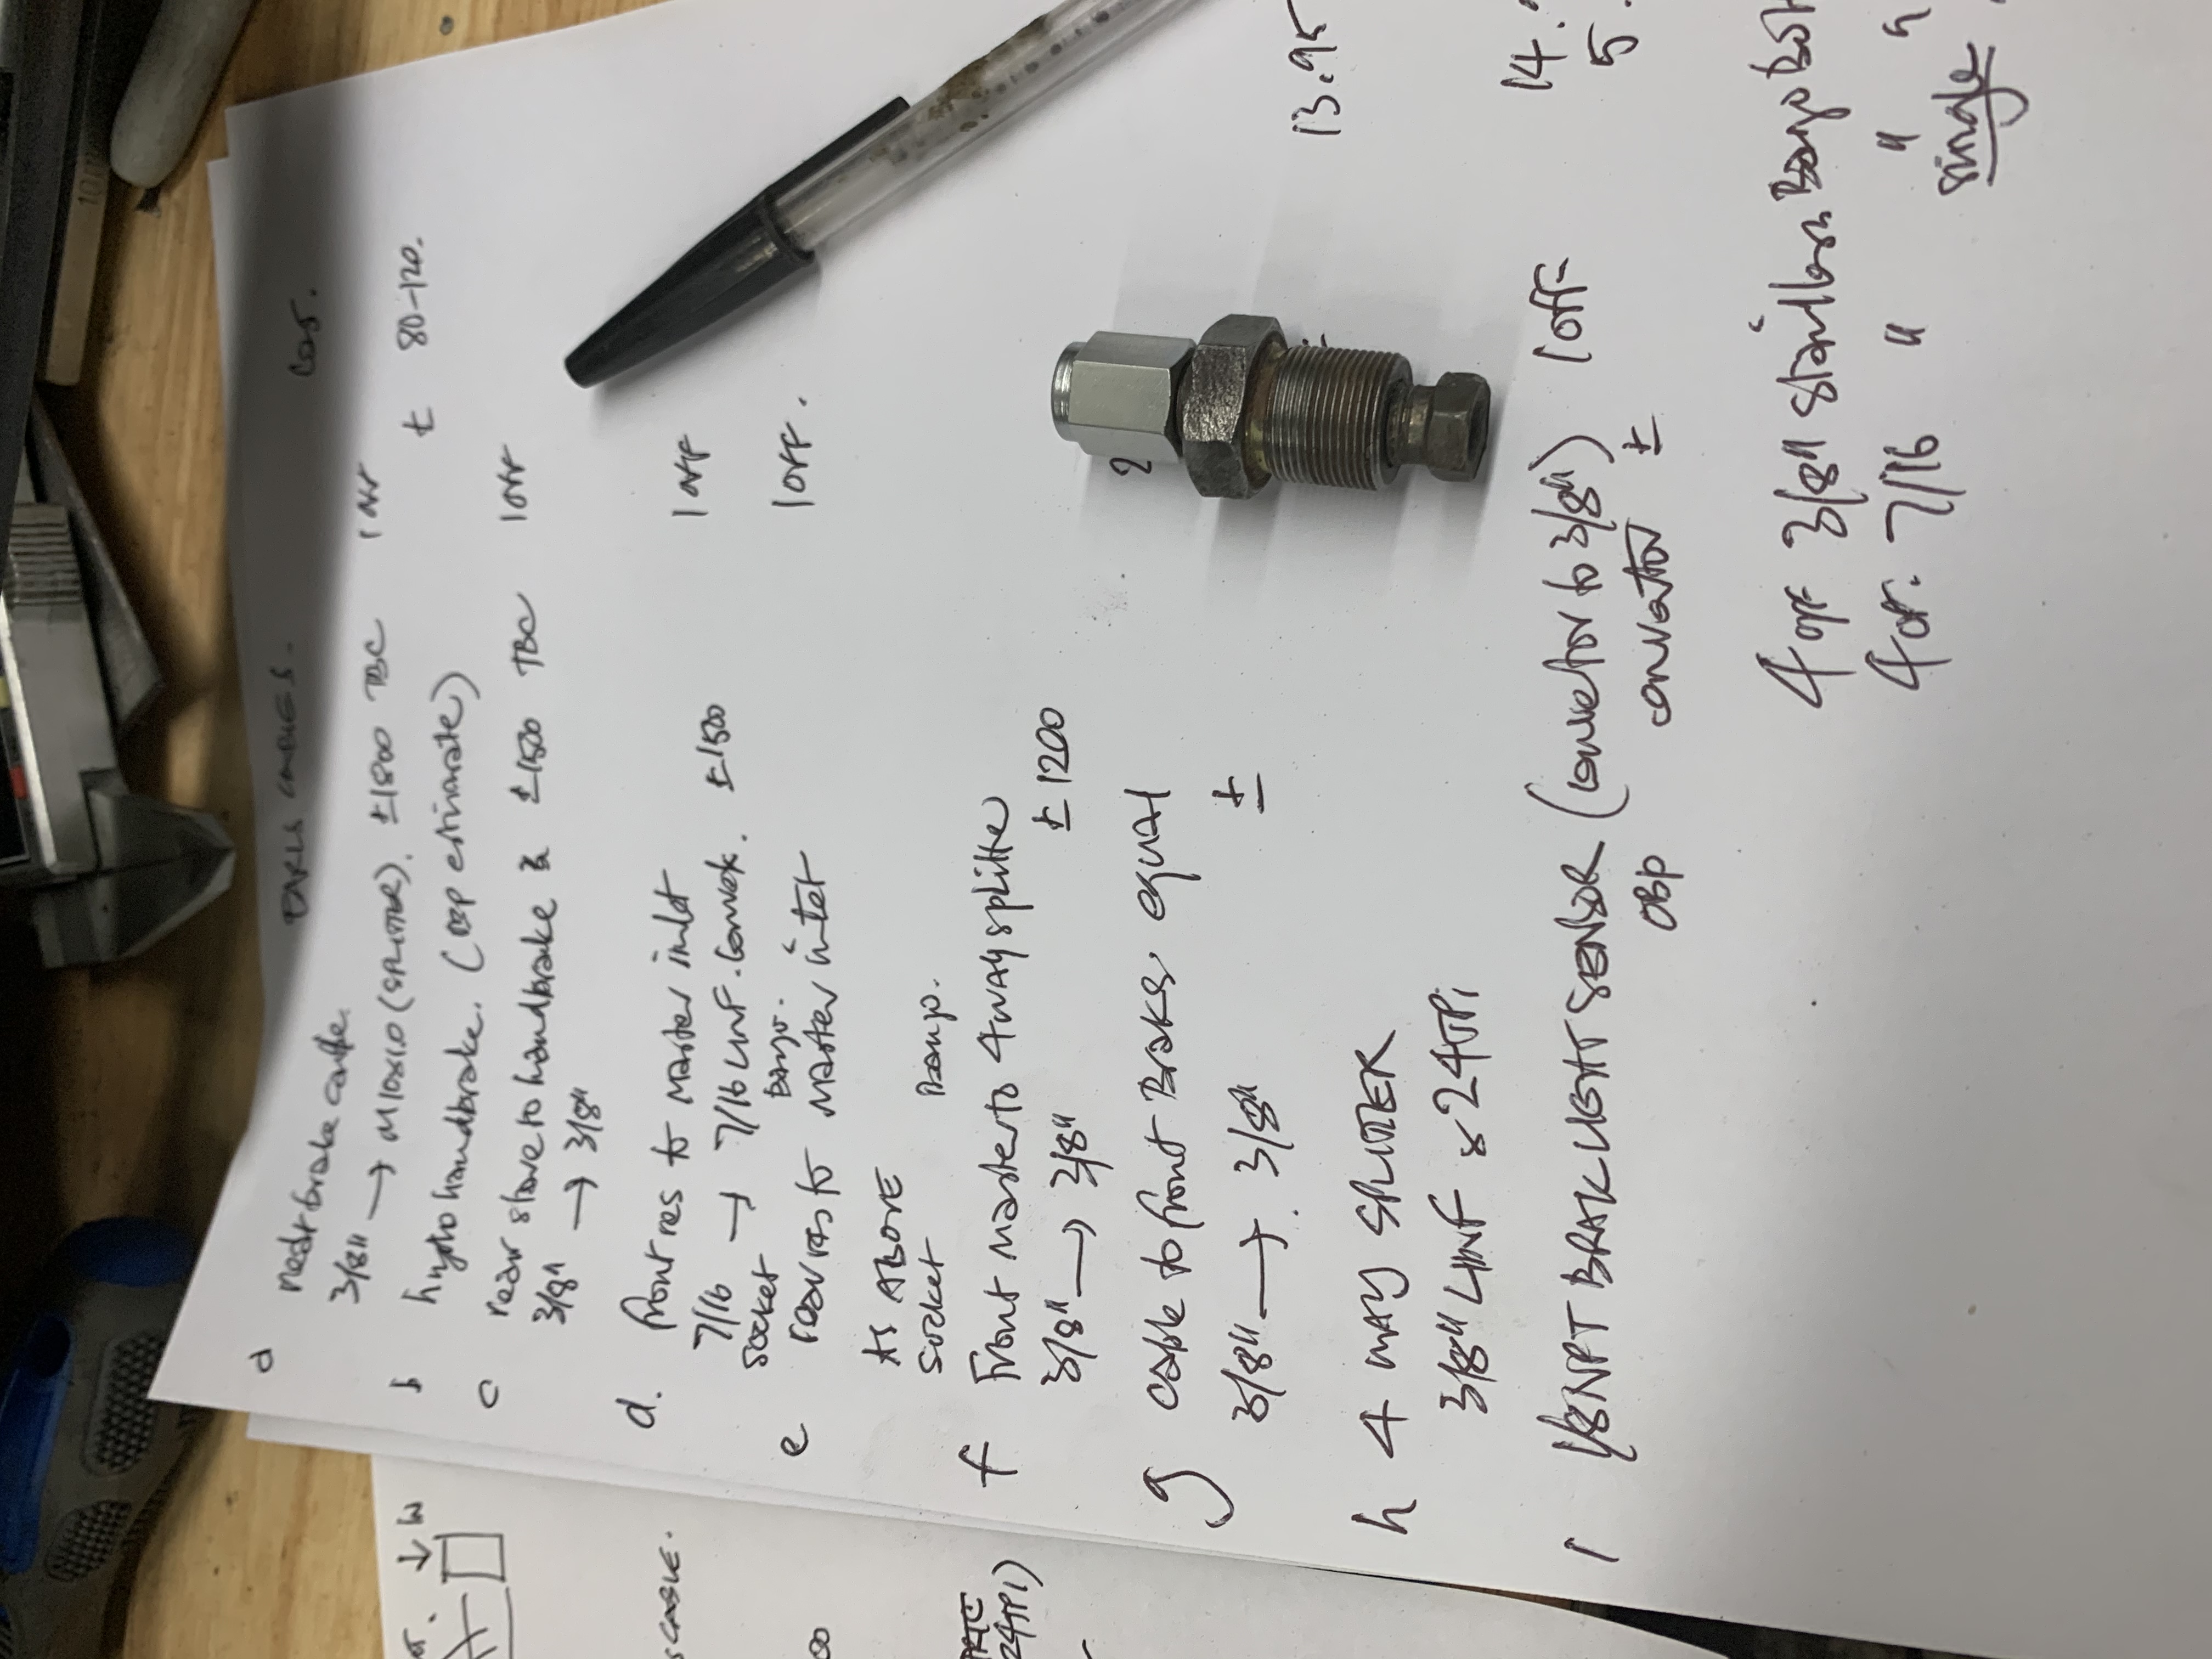 CABLES. Cos.
a rear brake cable.
3/8" → M10x1.0 (SPLITTER). ±1800 TBC 1 OFF
b hydro handbrake. (OBP estimate) £ 80-120.
c rear slave to handbrake ±1500 TBC 1 OFF
3/8" → 3/8"
d. front res to master inlet 1 OFF
7/16 → 7/16 UNF. convex. ±1500
socket Banjo.
e rear res to master inlet 1 OFF.
AS ABOVE
socket Banjo.
f front master to 4 way splitter
3/8" → 3/8" ±1200
g cable to front Brakes equal 2
3/8" → 3/8" ±
h 4 way SPLITTER 13.95
3/8" UNF x 24TPI
i 1/8 NPT BRAKE LIGHT SENSOR (convertor to 3/8") 1 OFF 14.
OBP ± 5.
4 OFF 3/8" stainless Banjo
4 OFF. 7/16 " " "
single
24TPI)